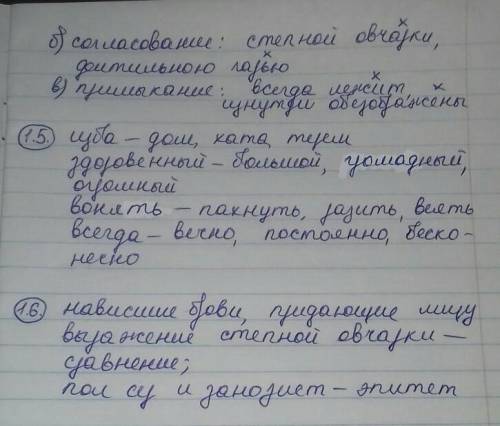 б) согласование: степной овчарки,
фитильною гарью
в) примыкание: всегда лежит,
изнутри обезображены
1.5. изба – дом, хата, терем
здоровенный – большой, громадный,
огромный
вонять – пахнуть, разить, веять
всегда – вечно, постоянно, беско-
нечно
1.6. нависшие брови, придающие лицу
выражение степной овчарки –
сравнение;
пол сух и занозист – эпитет